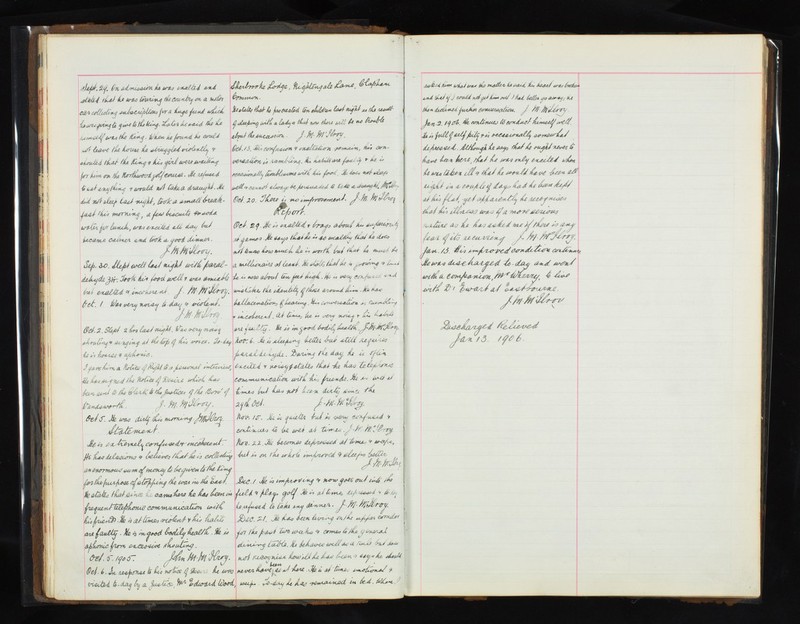 Sept. 29. On admission he was exalted and
stated that he was touring the country on a motor
car collecting subscriptions for a huge fund which
he was going to give to the King. Later he said that he
himself was the King. When he found he could
not leave the house he struggled violently &
shouted that the King & his girl were waiting
for him on the Northwood golf course. He refused
to eat anything & would not take a draught. He
did not sleep last night, took a small break-
fast this morning, a few biscuits & soda
water for lunch, was excited all day but
became calmer and took a good dinner.
J. M. McIlroy.
Sep. 30. Slept well last night with paral-
dehyde. Took his food well & was amiable
but exalted & incoherent. J. M. McIlroy.
Oct. 1. Was very noisy to-day & violent.
J. M. McIlroy
Oct. 2. Slept 2 hrs last night. Was very noisy
shouting & singing at the top of his voice. To-day
he is hoarse & aphonic.
I gave him a Notice of Right to a personal interview.
He has signed the Notice of Desire which has
been sent to the Clerk to the Justices of the Boro' of
Wandsworth. J. M. McIlroy.
Oct 5. He was dirty this morning J M McIlroy
Statement
He is extremely confused & incoherent.
He has delusions & believes that he is collecting
an enormous sum of money to be given to the King
for the purpose of stopping the war in the East.
He states that since he came here he has been in
frequent telephonic communication with
his friends. He is at times violent & his habits
are faulty. He is in good bodily health. He is
aphonic from excessive shouting.
Oct. 5. 1905. John M. McIlroy.
Oct. 6. In response to his notice of desire he was
visited to-day by a Justice, Mr Edward Wood,
Sherbrooke Lodge, Nightingale Lane, Clapham
Common.
He states that he procreated ten children last night as the result
of sleeping with a lady & that now there will be no trouble
about the succession. J. M. McIlroy.
Oct. 13. His confusion & exaltation remain, his con-
versation is rambling, his habits are faulty & he is
occasionally troublesome with his food. He does not sleep
well & cannot always be persuaded to take a draught, McIlroy
Oct. 20. There is no improvement. J M McIlroy
Report.
Oct. 29. He is exalted & brags about his superiority
at games. He says that he is so wealthy that he does
not know how much he is worth but that he must be
a millionaire at least. He states that he is growing & that
he is now about ten feet high. He is very confused and
mistakes the identity of those around him. He has
hallucinations of hearing. His conversation is rambling
& incoherent. At times he is very noisy & his habits
are faulty. He is in good bodily health. J M McIlroy
Nov. 6. He is sleeping better but still requires
paraldehyde. During the day he is often
excited & noisy & states that he has telephonic
communication with his friends. He is wet at
times but has not been dirty since the
29th Oct. J. M. McIlroy
Nov. 15. He is quieter but is very confused &
continues to be wet at times J. M. McIlroy
Nov. 22. He becomes depressed at times & weeps,
but is on the whole improved & sleeping better.
J. M. McIlroy
Dec. 1. He is improving & now goes out into the
field & plays golf. He is at times depressed & to-day
he refused to take any dinner. J M McIlroy
Dec. 21. He has been living on the upper corridor
for the past two weeks & comes to the general
dining table. He behaves well as a rule but does
not recognise how ill he has been & says he should
never have been sent here. He is at times emotional &
weeps. To-day he has remained in bed. When I
asked him what was the matter he said his heart was broken
and that if I would not get him out I had better go away; he
then declined further conversation. J M McIlroy
Jan. 2. 1906. He continues to conduct himself well.
He is full of self pity & is occasionally somewhat
depressed. Although he says that he ought never to
have been here, that he was only excited when
he was taken ill & that he would have been all
right in a couple of days had he been kept
at his flat, yet apparently he recognises
that his illness was of a more serious
nature as he has asked me if there is any
fear of its recurring J. M. McIlroy
Jan. 13. His improved condition continues
He was discharged to-day and went
with a companion, Mr Wherry, to live
with Dr. Ewart at Eastbourne.
J. M. McIlroy
Discharged Relieved
Jan 13. 1906.